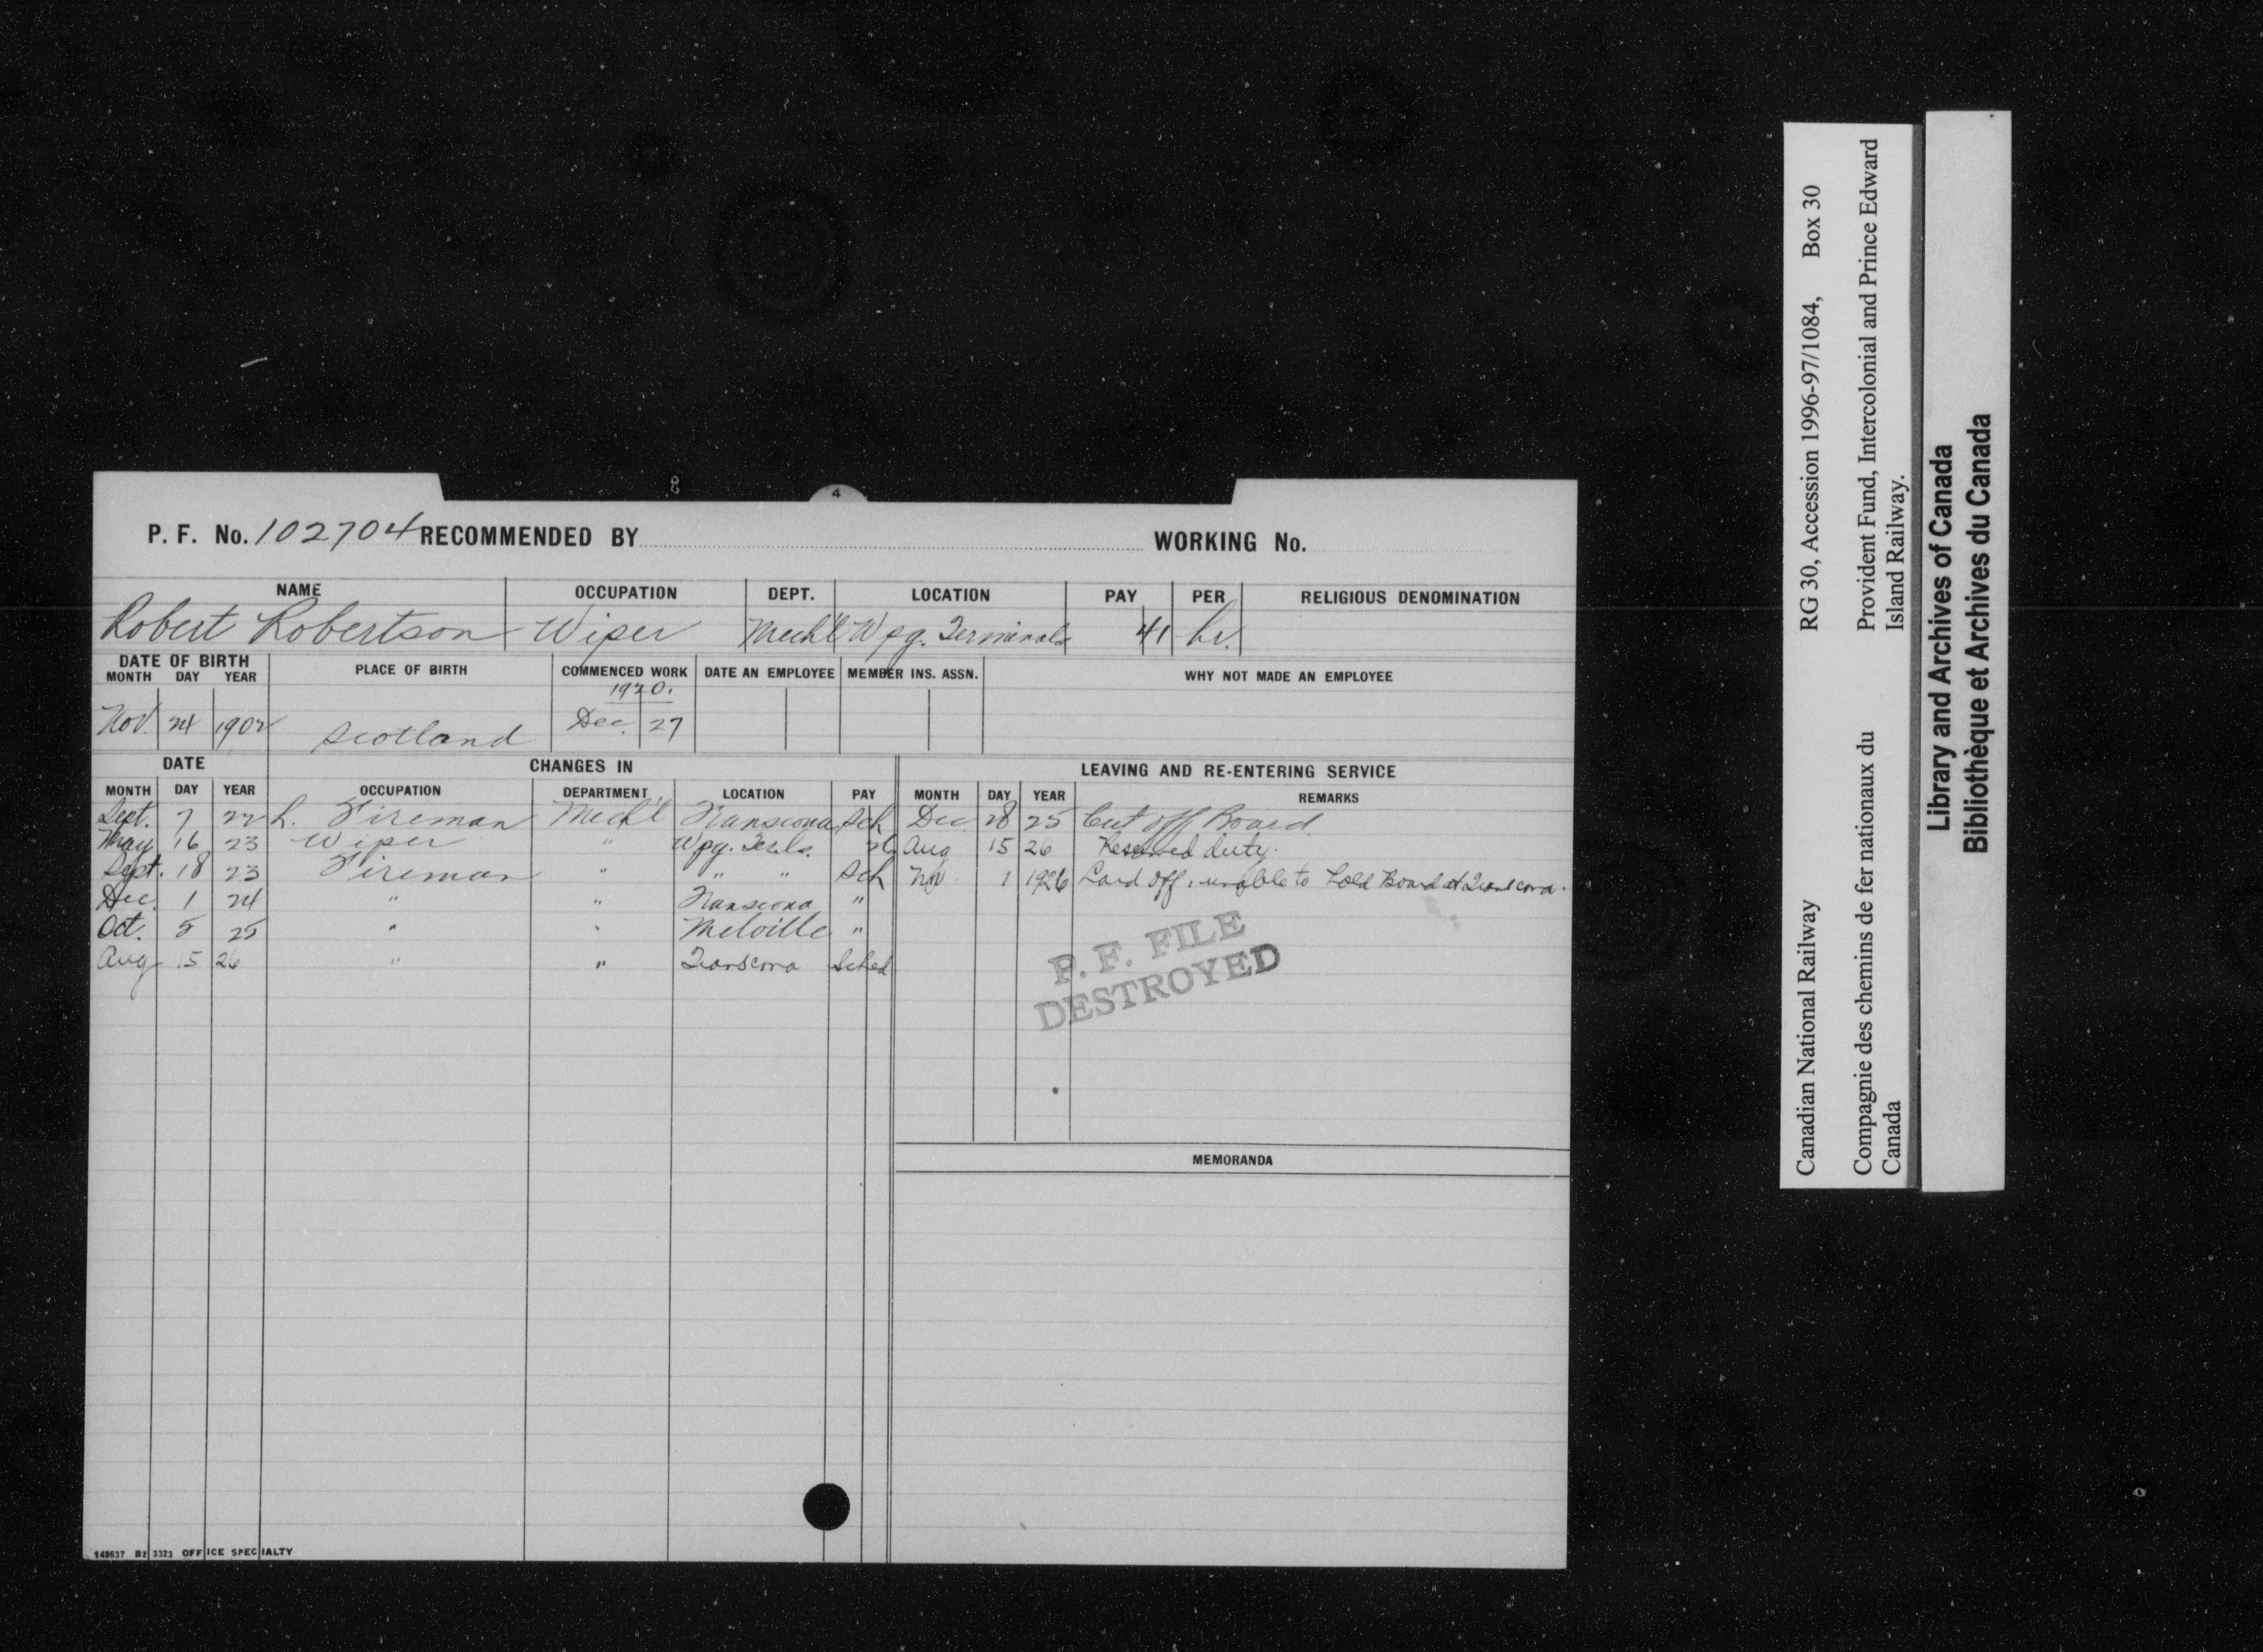 P. F. No. 102704 RECOMMENDED BY WORKING No.
NAME OCCUPATION DEPT. LOCATION PAY PER RELIGIOUS DENOMINATION
Robert Robertson Wiper Mech'l Wpg. Terminals 41 hr.
DATE OF BIRTH PLACE OF BIRTH COMMENCED WORK DATE AN EMPLOYEE MEMBER INS. ASSN. WHY NOT MADE AN EMPLOYEE
MONTH DAY YEAR
1920.
Nov. 24 1902 Scotland Dec. 27
DATE CHANGES IN LEAVING AND RE-ENTERING SERVICE
MONTH DAY YEAR OCCUPATION DEPARTMENT LOCATION PAY MONTH DAY YEAR REMARKS
Sept. 7 22 L. Fireman Mech'l Transcona Sch Dec. 28 25 Cut off Board
May 16 23 Wiper " Wpg. Aug 15 26 Resumed duty.
Sept. 18 23 Fireman " " " Sch Nov 1 1926 Laid off, unable to hold Board at Transcona.
Dec. 1 24 " " Transcona "
Oct. 5 25 " " Melville "
Aug 15 26 " " Transcona Sched
P. F. FILE
DESTROYED
MEMORANDA
148637 3323 OFFICE SPECIALTY
4
8
Canadian National Railway RG 30, Accession 1996-97/1084, Box 30
Compagnie des chemins de fer nationaux du Provident Fund, Intercolonial and Prince Edward
Canada Island Railway.
Library and Archives of Canada
Bibliothèque et Archives du Canada